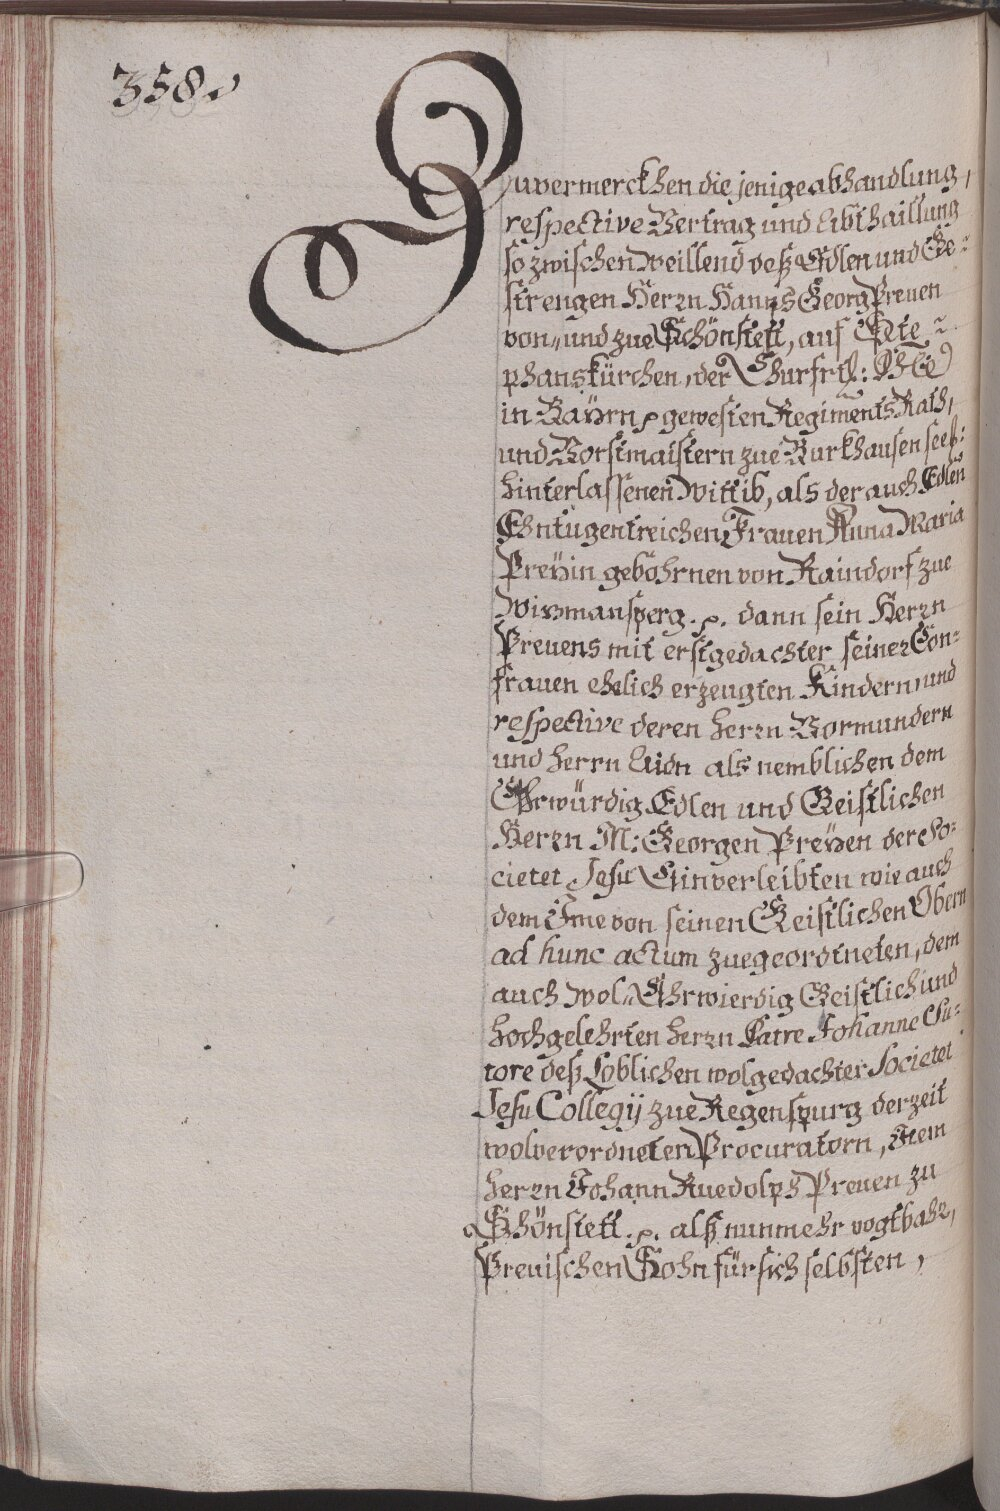 358.
Zuvermerckhen die jenige abhandlung,
respective Vertrag und Abthaillung
so zwischen weillend deß Edlen und Ge=
strengen Herrn Hanns Georg Preuen
von, und zue Schönstett, auf Ste=
phanskürchen, der Churfrtl:
in Bayrn p gewesten Regiments Rath,
und Vorstmaistern zue Burkhausen seel:
hinterlassenen Wittib, als der auch Edlen
Ehntugentreichen Frauen Anna Maria
Preyin gebohrnen von Raindorf zue
Wizmansperg. p. dann sein Herrn
Preuens mit erstgedachter seiner Con=
frauen ehelich erzeugten Kindern, und
respective deren herrn Vormundern
und herrn Aidn als nemblichen dem
Ehrwürdig Edlen und Geistlichen
Herrn M: Georgen Preyen der So=
cietet Jesu Einverleibten wie auch
dem Ime von seinen Geistlichen Obern
ad hunc actum zuegeordtneten, dem
auch Wol, Ehrwierdig Geistlich und
hochgelehrten herrn Patre Johanne Su=
tore deß Loblichen wolgedachter Societet
Jesu Collegij zue Regenspurg derzeit
wolverordneten Procuratorn, Item
herrn Johann Ruedolph Preuen zu
Schönstett. p. alß nunmehr vogtbahr,
Preuischen Sohn für sich selbsten,